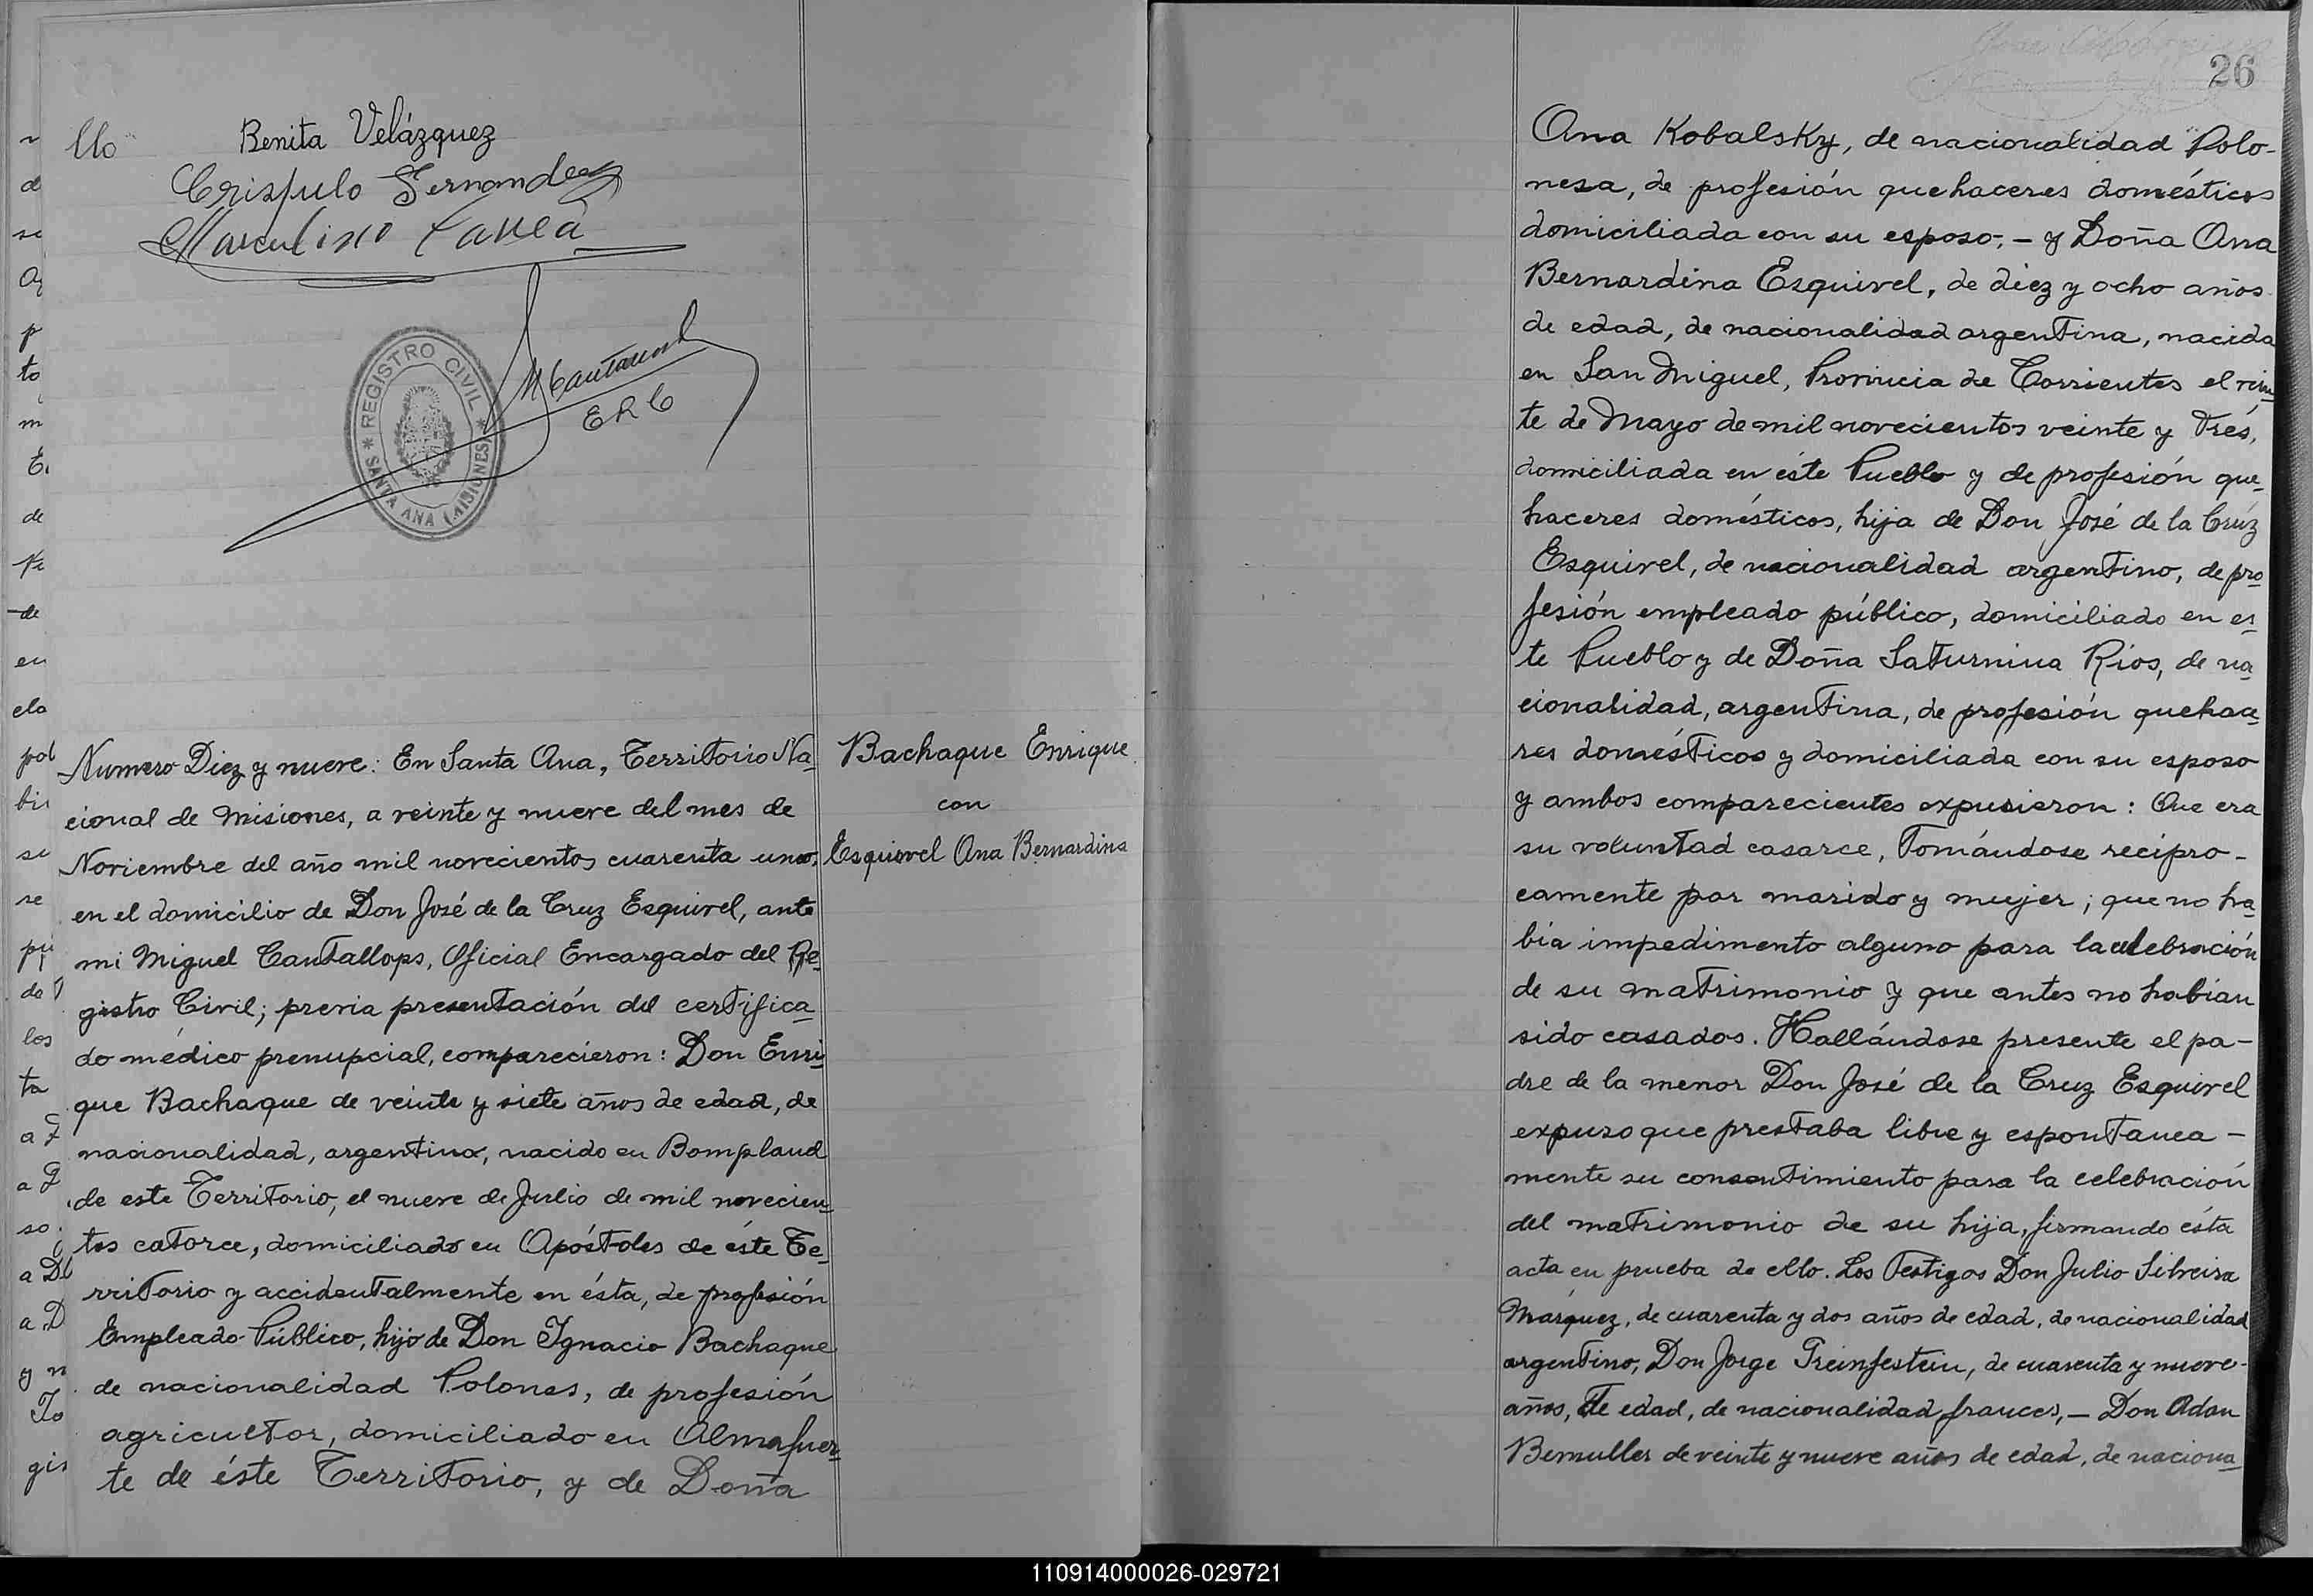 Benita Velázquez
Crispulo Fernandez
REGISTRO CIVIL
SANTA ANA (MISIONES)
E R C
Numero Diez y nueve: En Santa Ana, Territorio Na-
cional de Misiones, a veinte y nueve del mes de
Noviembre del año mil novecientos cuarenta uno,
en el domicilio de Don José de la Cruz Esquivel, ante
mi Miguel Cantallops, Oficial Encargado del Re-
gistro Civil; previa presentación del certifica-
do médico prenupcial, comparecieron: Don Enri-
que Bachaque de veinte y siete años de edad, de
nacionalidad, argentino, nacido en Bompland
de este Territorio, el nueve de Julio de mil novecien-
tos catorce, domiciliado en Apóstoles de éste Te-
rritorio y accidentalmente en ésta, de profesión
Empleado Público, hijo de Don Ignacio Bachaque
de nacionalidad Polones, de profesión
agricultor, domiciliado en Almafuer-
te de éste Territorio, y de Doña
Bachaque Enrique
con
Esquivel Ana Bernardina
26
Ana Kobalsky, de nacionalidad Polo-
nesa, de profesión quehaceres domésticos
domiciliada con su esposo; - y Doña Ana
Bernardina Esquivel, de diez y ocho años
de edad, de nacionalidad argentina, nacida
en San Miguel, Provincia de Corrientes el vein-
te de Mayo de mil novecientos veinte y Trés,
domiciliada en éste Pueblo y de profesión que-
haceres domésticos, hija de Don José de la Crúz
Esquivel, de nacionalidad argentino, de pro-
fesión empleado público, domiciliado en es-
te Pueblo y de Doña Saturnina Rios, de na-
cionalidad, argentina, de profesión quehace-
res domésticos y domiciliada con su esposo
y ambos comparecientes expusieron: Que era
su voluntad casarce, Tomándose recipro-
camente por marido y mujer; que no ha-
bía impedimento alguno para la celebración
de su matrimonio y que antes no habian
sido casados. Hallándose presente el pa-
dre de la menor Don José de la Cruz Esquivel
expuso que prestaba libre y espontanea-
mente su consentimiento para la celebración
del matrimonio de su hija, firmando ésta
acta en prueba de ello. Los Testigos Don Julio Silveira
Márquez, de cuarenta y dos años de edad, de nacionalidad
argentino, Don Jorge Treinfestein, de cuarenta y nueve
años, de edad, de nacionalidad frances, - Don Adan
Bemuller de veinte y nueve años de edad, de naciona-
110914000026-029721